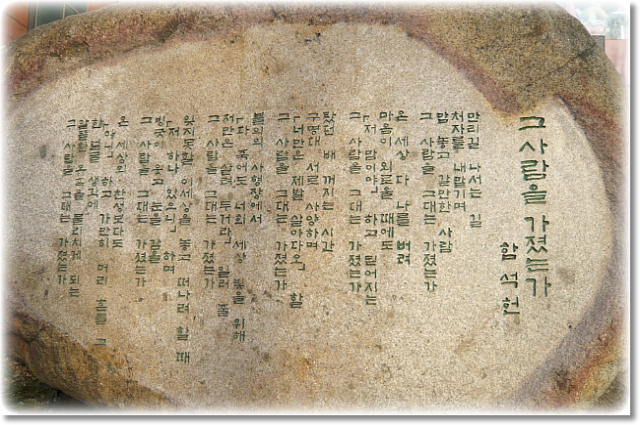 그 사람을 가졌는가
함석헌
만리길 나서는 길
처자를 내맡기며
맘 놓고 갈만한 사람
그 사람을 그대는 가졌는가
온 세상 다 나를 버려
마음이 외로울 때에도
「저 맘이야」 하고 믿어지는
그 사람을 그대는 가졌는가
탔던 배 꺼지는 시간
구명대 서로 사양하며
「너만은 제발 살아다오」 할
그 사람을 그대는 가졌는가
불의의 사형장에서
「다 죽어도 너희 세상 빛을 위해
저만은 살려 두거라」 일러 줄
그 사람을 그대는 가졌는가
잊지못할 이 세상을 놓고 떠나려 할 때
「저 하나 있으니」 하며
빙긋이 웃고 눈을 감을
그 사람을 그대는 가졌는가
온 세상의 찬성보다도
「아니」 하고 가만히 머리 흔들 그
한 얼굴 생각에
알뜰한 유혹을 물리치게 되는
그 사람을 그대는 가졌는가